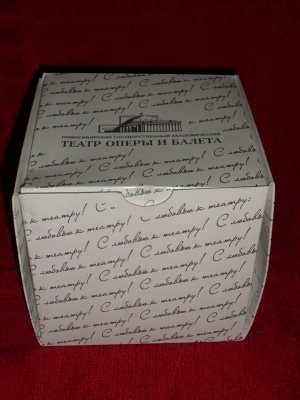 С любовью к театру! С любовью к театру!
НОВОСИБИРСКИЙ ГОСУДАРСТВЕННЫЙ АКАДЕМИЧЕСКИЙ
ТЕАТР ОПЕРЫ И БАЛЕТА
С любовью к театру! С любовью к театру!
к театру! С любовью к театру! С
С любовью к театру! С любовью к театру!
к театру! С любовью к театру! С любовью
С любовью к театру! С любовью к театру!
к театру! С любовью к театру! С любовью
С любовью к театру! С любовью к театру!